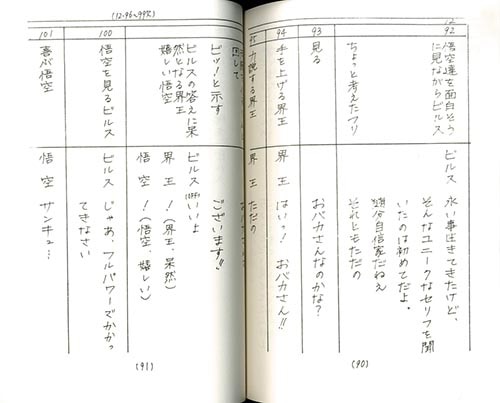 12
92
悟空達を面白そう
に見ながらビルス
ちょっと考えたフリ
ビルス 永い事生きてきたけど、
そんなユニークなセリフを聞
いたのは初めてだよ。
随分自信家だねえ
それともただの
93
見る
おバカさんなのかな?
94
手を上げる界王
界王 はいっ! おバカさん!!
95
力説する界王
界王 ただの
(90)
(12-96~99欠)
ございます!!
ピッ!と示す
ビルスの答えに呆
然となる界王
嬉しい悟空
ビルス(OFF) いいよ
界王 !(界王、呆然)
悟空 !(悟空、嬉しい)
100
悟空を見るビルス
ビルス じゃあ、フルパワーでかかっ
てきなさい
101
喜ぶ悟空
悟空 サンキュ…
(91)